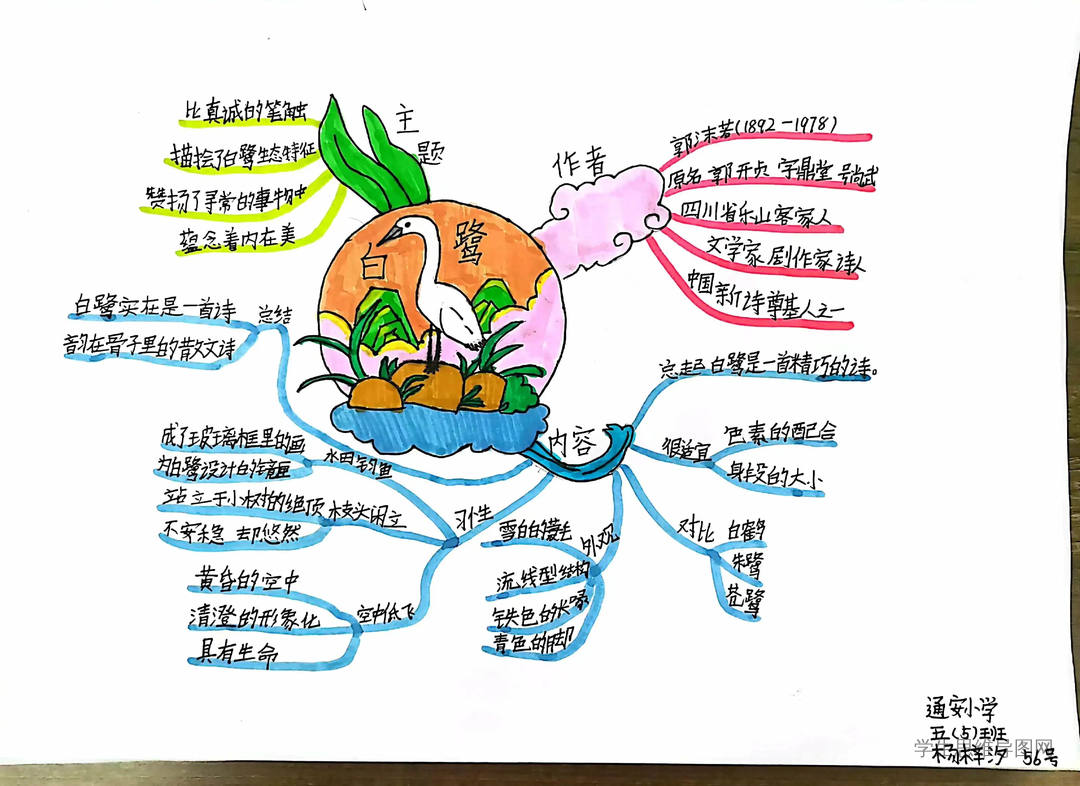 主题
比真诚的笔触
描绘了白鹭生态特征
赞扬了寻常的事物中
蕴念着内在美
作者
郭沫若(1892-1978)
原名 郭开贞 字鼎堂 号尚武
四川省乐山客家人
文学家 剧作家 诗人
中国新诗奠基人之一
白鹭
总结
白鹭实在是一首诗
韵在骨子里的散文诗
内容
总起 白鹭是一首精巧的诗。
很适宜
色素的配合
身段的大小
对比
白鹤
朱鹭
苍鹭
外观
雪白的蓑毛
流线型结构
铁色的长喙
青色的脚
习性
水田钓鱼
成了玻璃框里的画
为白鹭设计的镜匣
枝头闲立
站立于小树的绝顶
不安稳 却悠然
空中低飞
黄昏的空中
清澄的形象化
具有生命
通安小学
五(5)班
56号